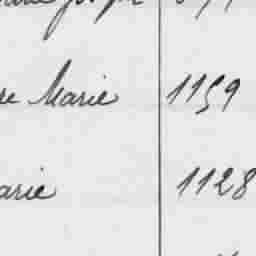 re Marie 1159
arie 1128